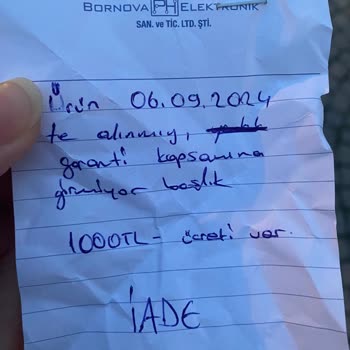 BORNOVA PH ELEKTRONİK
SAN. ve TİC. LTD. ŞTİ.
Ürün 06.09.2024
te alınmış,
garanti kapsamına
girmiyor başlık
1000TL- ücreti var.
İADE